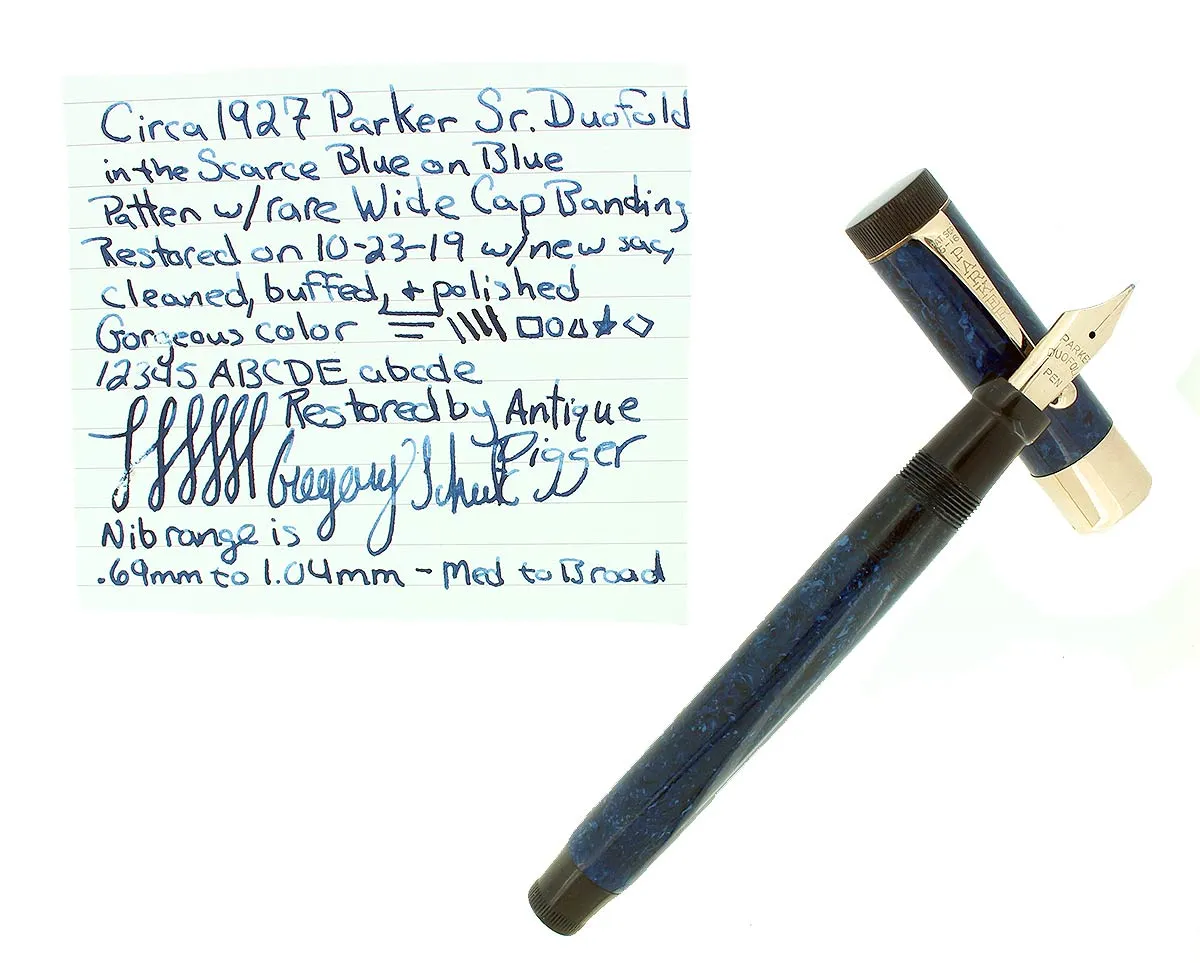 Circa 1927 Parker Sr. Duofold
in the Scarce Blue on Blue
Patten w/rare Wide Cap Banding
Restored on 10-23-19 w/new sac,
cleaned, buffed, + polished
Gorgeous color
12345 ABCDE abcde
Restored by Antique
Digger
Gregory
Nib range is
.69mm to 1.04mm - Med to Broad
PARKER
PARKER
DUOFOLD
PEN